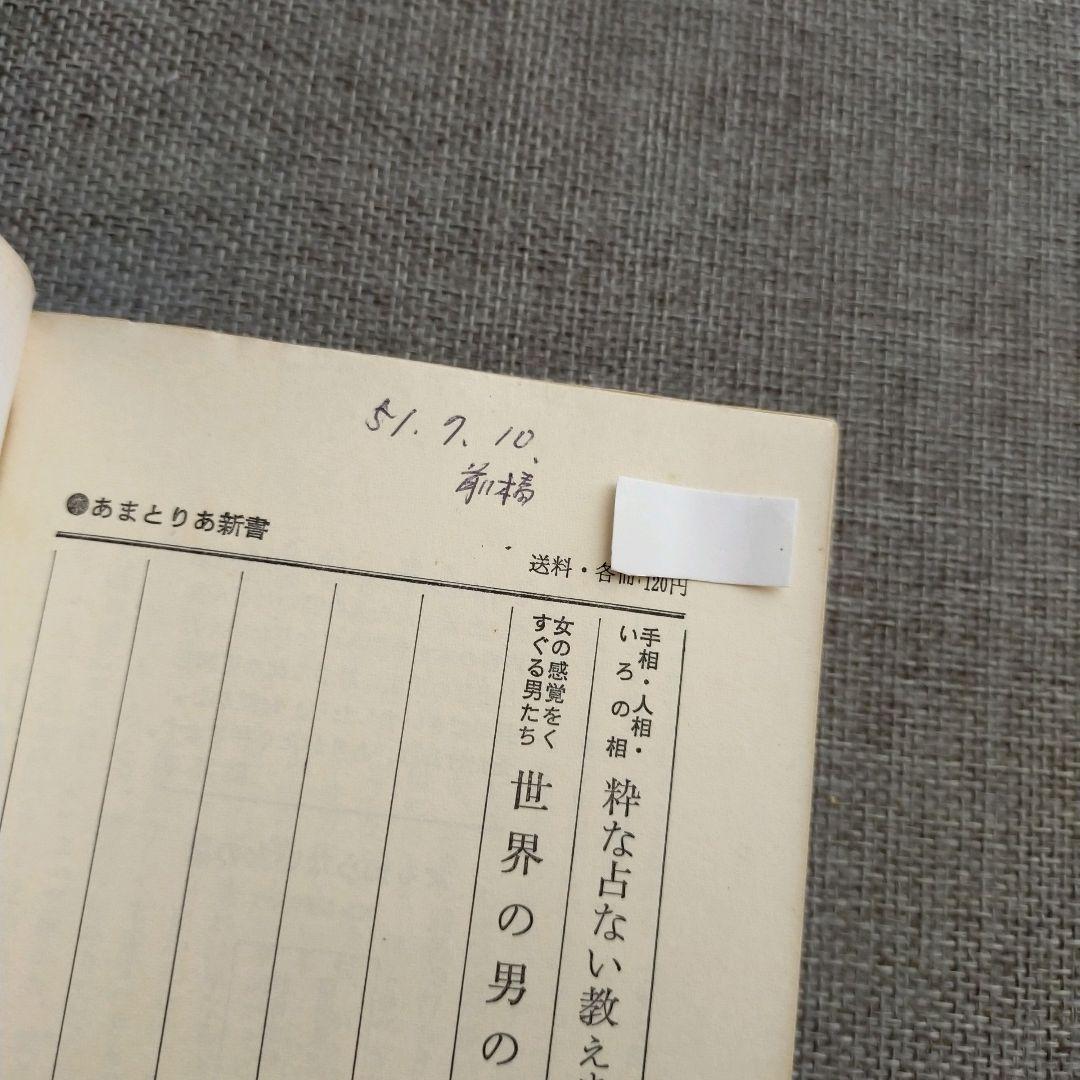 51.7.10.
前橋
●あまとりあ新書
送料・各冊 120円
手相・人相・
いろの相
粋な占ない教え
女の感覚をく
すぐる男たち
世界の男の